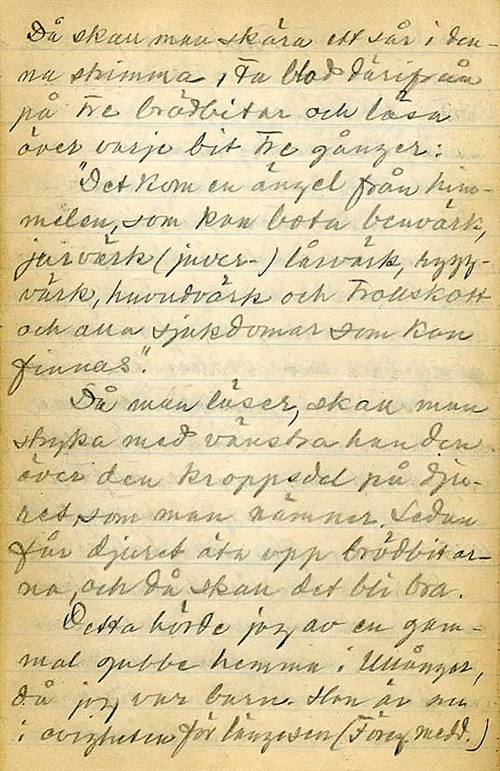 Då skall man skära ett sår i den-
na strimma, ta blod därifrån
på tre brödbitar och läsa
över varje bit tre gånger:
"Det kom en ängel från him-
melen, som kan bota benvärk,
jurvärk (juver-) lårvärk, rygg-
värk, huvudvärk och trollskott
och alla sjukdomar som kan
finnas".
Då man läser, skall man
stryka med vänstra handen
över den kroppsdel på dju-
ret, som man nämner. Sedan
får djuret äta upp brödbitar-
na, och då skall det bli bra.
Detta hörde jag av en gam-
mal gubbe hemma i Ullånger,
då jag var barn. Han är nu
i evigheten för längesen (Föreg. medd.)